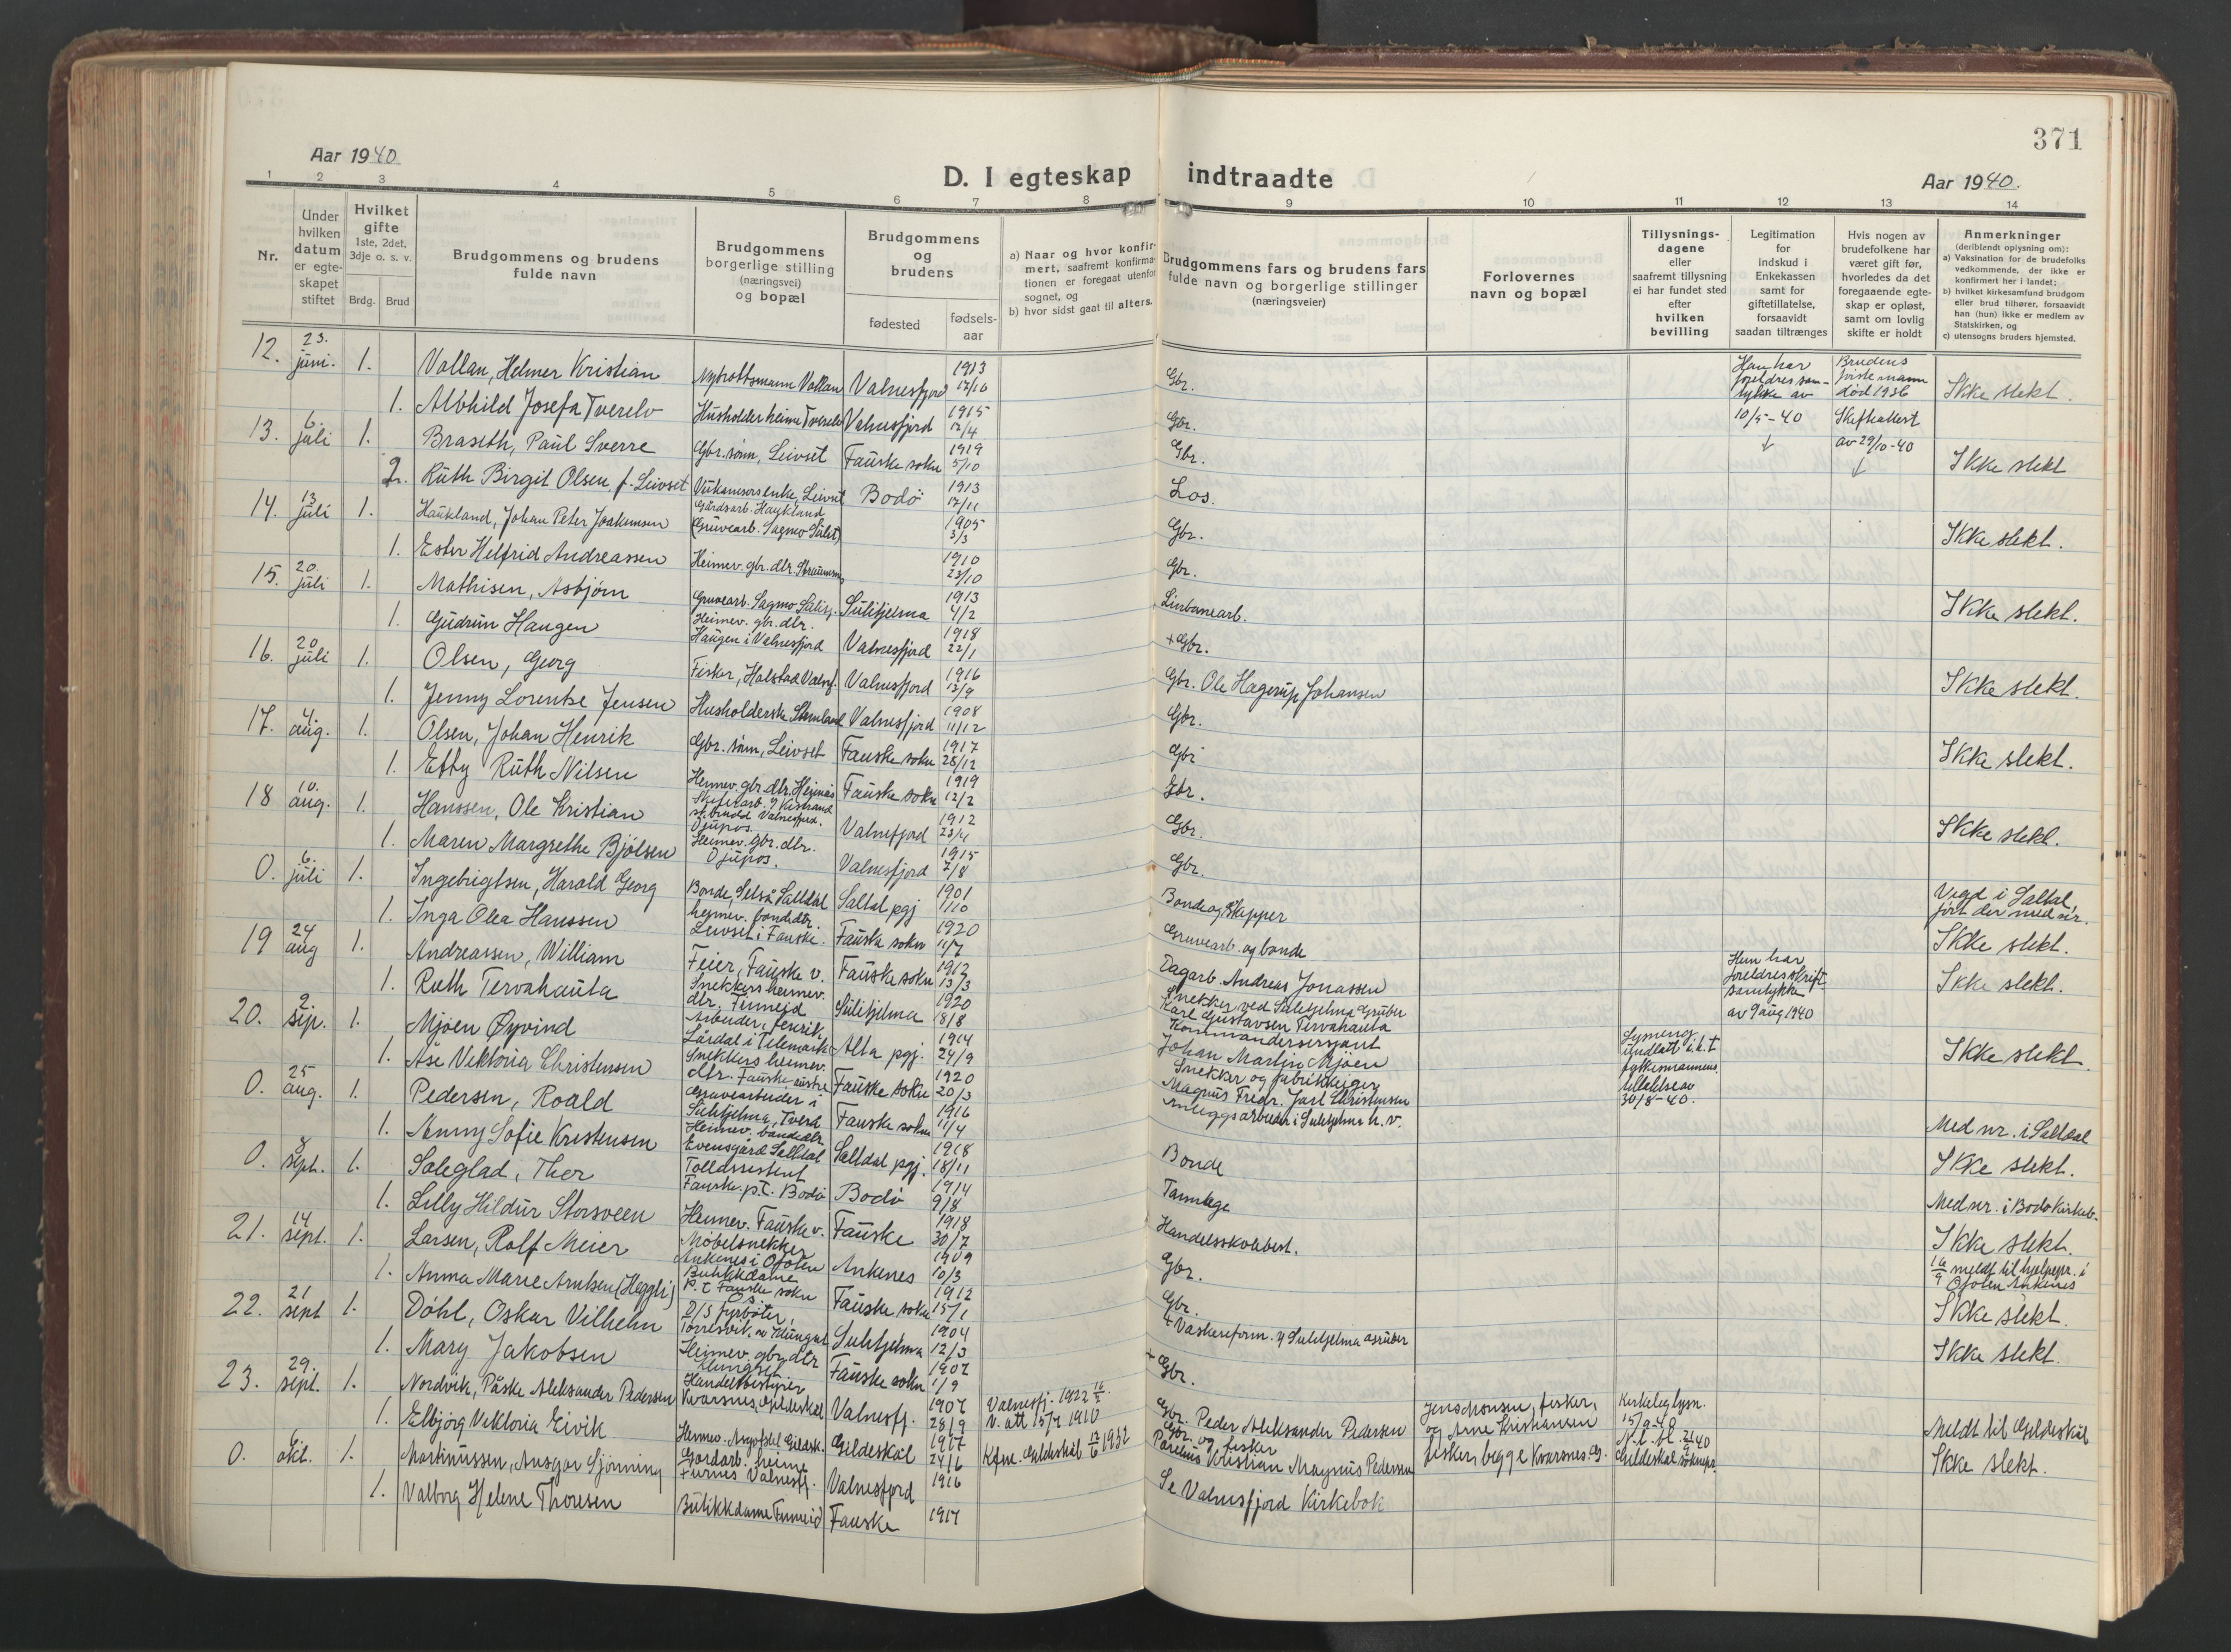 371
Aar 1940
D. I egteskap indtraadte
Aar 1940.
1 2 3 4 5 6 7 8 9 10 11 12 13 14
Nr.
Under hvilken datum er egteskapet stiftet
Hvilket gifte
1ste, 2det, 3dje o. s. v.
Brdg. Brud
Brudgommens og brudens fulde navn
Brudgommens borgerlige stilling (næringsvei) og bopæl
Brudgommens og brudens
fødested
fødselsaar
a) Naar og hvor konfirmert, saafremt konfirmationen er foregaat utenfor sognet, og
b) hvor sidst gaat til alters.
Brudgommens fars og brudens fars fulde navn og borgerlige stillinger (næringsveier)
Forlovernes navn og bopæl
Tillysningsdagene eller saafremt tillysning ei har fundet sted efter hvilken bevilling
Legitimation for indskud i Enkekassen samt for giftetillatelse, forsaavidt saadan tiltrænges
Hvis nogen av brudefolkene har været gift før, hvorledes da det foregaaende egteskap er opløst, samt om lovlig skifte er holdt
Anmerkninger
(deriblandt oplysning om):
a) Vaksination for de brudefolks vedkommende, der ikke er konfirmert her i landet;
b) hvilket kirkesamfund brudgom eller brud tilhører, forsaavidt han (hun) ikke er medlem av Statskirken, og
c) utensogns bruders hjemsted.
12. 23. juni. 1. Vallan, Helmer Kristian Valnesfjord 1913 17/10 Gbr. Ikke slekt.
1. Alvhild Josefa Tverelv Valnesfjord 1915 12/4 Gbr.
Hun har foreldres samtykke av 10/5-40
Brudens første mann død 1936 Skifteattest av 29/10-40
13. 6. juli 1. Braseth, Paul Sverre Gbr. sønn, Leivset Fauske sokn 1919 5/10 Gbr. Ikke slekt
2. Ruth Birgit Olsen f. Leivset Bodø 1913 17/11 Los.
14. 13 juli 1. Haukland, Johan Peter Joakimsen Gårdsarb. Haukland (Gruvearb. Sagmo Sulit) 1905 3/3 Gbr. Ikke slekt.
1. Ester Helfrid Andreassen Heimev. gbr. dtr. 1910 23/10 Gbr.
15. 20. juli 1. Mathisen, Asbjørn Gruvearb. Sagmo Sulitj. Sulitjelma 1913 4/2 Linbanearb. Ikke slekt.
1. Gudrun Haugen Heimev. gbr. dtr. Haugen i Valnesfjord Valnesfjord 1918 22/1 + Gbr.
16. 20 juli 1. Olsen, Georg Fisker, Halstad Valnesf. Valnesfjord 1916 13/9 Gbr. Ole Hagerup Johansen Ikke slekt.
1. Jenny Lorentse Jensen Husholderske Valnesfjord 1908 11/12 Gbr.
17. 4. aug. 1. Olsen, Johan Henrik Gbr. sønn, Leivset Fauske sokn 1917 28/12 Gbr Ikke slekt.
1. Etty Ruth Nilsen Heimev. gbr. dtr. Fauske sokn 1919 12/2 Gbr.
18 10. aug. 1. Hanssen, Ole Kristian Djupos. Valnesfjord 1912 23/4 Gbr. Ikke slekt.
1. Maren Margrethe Bjölsen Heimev. gbr. dtr. Djupos. Valnesfjord 1915 7/8 Gbr.
0. 6. juli 1. Ingebrigtsen, Harald Georg Bonde, Saltdal Saltdal pgj 1901 1/10 Bonde og skipper Vigd i Saltdal, ført der med nr.
1. Inga Olea Hanssen heimev. bondedtr. Leivset i Fauske. Fauske sokn 1920 11/7 Gruvearb. og bonde Ikke slekt.
19 24 aug 1. Andreassen, William Feier, Fauske v. Fauske sokn 1912 13/3 Dagarb. Andreas Jonassen Ikke slekt.
1. Ruth Tervahauta Snekkers heimev. dtr. Finneid Sulitjelma 1920 18/8 Snekker ved Sulitjelma Gruber Karl Gustavsen Tervahauta
Hun har foreldres skrift. samtykke av 9 aug 1940
20. 2. sep. 1. Mjøen Øyvind Arbeider, Lårdal i Telemark Alta pgj. 1914 24/9 Kommandersersjant Johan Martin Mjøen Ikke slekt.
1. Åse Viktoria Christensen Snekkers heimev. dtr. Fauske østre Fauske sokn 1920 20/3 Snekker og fabrikkeiger Magnus Fredr. Jarl Christensen
fylkesmannens tillatelse av 30/8-40.
0. 25 aug. 1. Pedersen, Roald Gruvearbeider i Sulitjelma, Tverå Fauske sokn 1916 11/4 Anleggsarbeider i Sulitjelma h. v. Med nr. i Saltdal
1. Anny Sofie Kristensen Heimev. bondedtr. Evensgård Saltdal Saltdal pgj. 1918 18/11 Bonde Ikke slekt.
0. 8 sept. 1. Soleglad, Thor Tollassistent Fauske p.t. Bodø Bodø 1914 9/8 Tannlege Med nr. i Bodø Kirkeb.
1. Lilly Hildur Storsveen Heimev. Fauske v. Fauske 1918 30/7 Handelsskolebest. Ikke slekt.
21. 14 sept. 1. Larsen, Rolf Meier Møbelsnekker Ankenes i Ofoten Ankenes 1909 10/3 Gbr. 16/9 meldt til hjelpepr. i Ofoten Ankenes
1. Anna Marie Arntsen (Heggli) Butikkdame p.t. Fauske sokn Fauske sokn 1912 15/1 Gbr. Ikke slekt.
22. 21 sept 1. Döhl, Oskar Vilhelm D/S fyrbøter, Sulitjelma 1904 12/3 + Vaskereform. v/ Sulitjelma Gruber Ikke slekt.
1. Mary Jakobsen Heimev. gbr. dtr Klungset Fauske sokn 1907 1/9 + Gbr.
23. 29. sept. 1. Nordvik, Påske Aleksander Pedersen Handelsbestyrer Kvarsnes, Gildeskål Valnesfj. 1907 28/9 Valnesfj. 1922 V. att 15/7 1910 Gbr. Peder Aleksander Pedersen Jens Monsen, fisker, og Arne Kristiansen fisker, begge Kvarsnes. G. Kirkeleg lysn. 15/9-40 Meldt til Gildeskål
1. Elbjørg Viktoria Eivik Heimev. Gildesk. Gildeskål 1917 24/6 Kfm. Gildeskål 1932 Gbr. og fisker Parelius Kristian Magnus Pedersen Gildeskål sokneprs. Ikke slekt.
0. 6 okt. 1. Martinussen, Ansgar Sjønning Gardarb. heime Furnes Valnesfj. Valnesfjord 1916 Se Valnesfjord Kirkebok
1. Valborg Helene Thoresen Butikkdame Finneid Fauske 1917